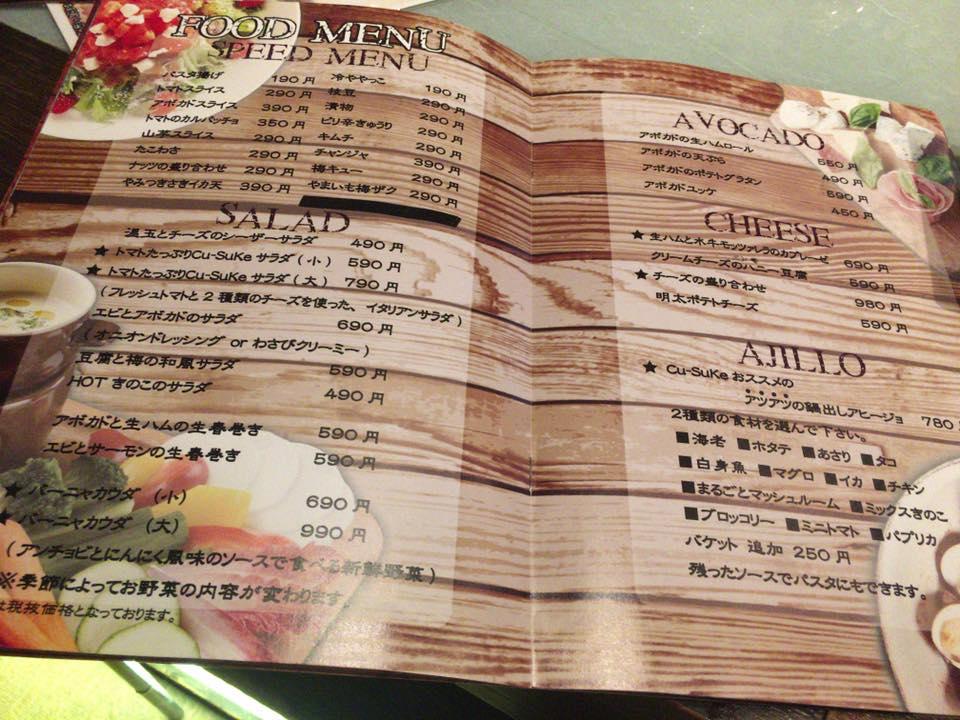 FOOD MENU
SPEED MENU
パスタ揚げ 190円 冷ややっこ 190円
トマトスライス 290円 枝豆 290円
アボカドスライス 390円 漬物 290円
トマトのカルパッチョ 350円 ピリ辛きゅうり 290円
山芋スライス 290円 キムチ 290円
たこわさ 290円 チャンジャ 390円
ナッツの盛り合わせ 290円 梅キュー 290円
やみつきさきイカ天 390円 やまいも梅ザク 290円
SALAD
温玉とチーズのシーザーサラダ 490円
★トマトたっぷりCu-SuKeサラダ(小) 590円
★トマトたっぷりCu-SuKeサラダ(大) 790円
(フレッシュトマトと2種類のチーズを使った、イタリアンサラダ)
エビとアボカドのサラダ 690円
(オニオンドレッシング or わさびクリーミー)
豆腐と梅の和風サラダ 590円
HOTきのこのサラダ 490円
アボカドと生ハムの生春巻き 590円
エビとサーモンの生春巻き 590円
★バーニャカウダ (小) 690円
★バーニャカウダ (大) 990円
(アンチョビとにんにく風味のソースで食べる新鮮野菜)
※季節によってお野菜の内容が変わります。
は税抜価格となっております。
AVOCADO
アボカドの生ハムロール 550円
アボカドの天ぷら 490円
アボカドのポテトグラタン 590円
アボカドユッケ 450円
CHEESE
★生ハムと水牛モッツァレラのカプレーゼ 690円
クリームチーズのハニー豆腐 590円
★チーズの盛り合わせ 980円
明太ポテトチーズ 590円
AJILLO
★Cu-SuKeおススメの
アツアツの鍋出しアヒージョ 780円
2種類の食材を選んで下さい。
■海老 ■ホタテ ■あさり ■タコ
■白身魚 ■マグロ ■イカ ■チキン
■まるごとマッシュルーム ■ミックスきのこ
■ブロッコリー ■ミニトマト ■パプリカ
バケット 追加 250円
残ったソースでパスタにもできます。